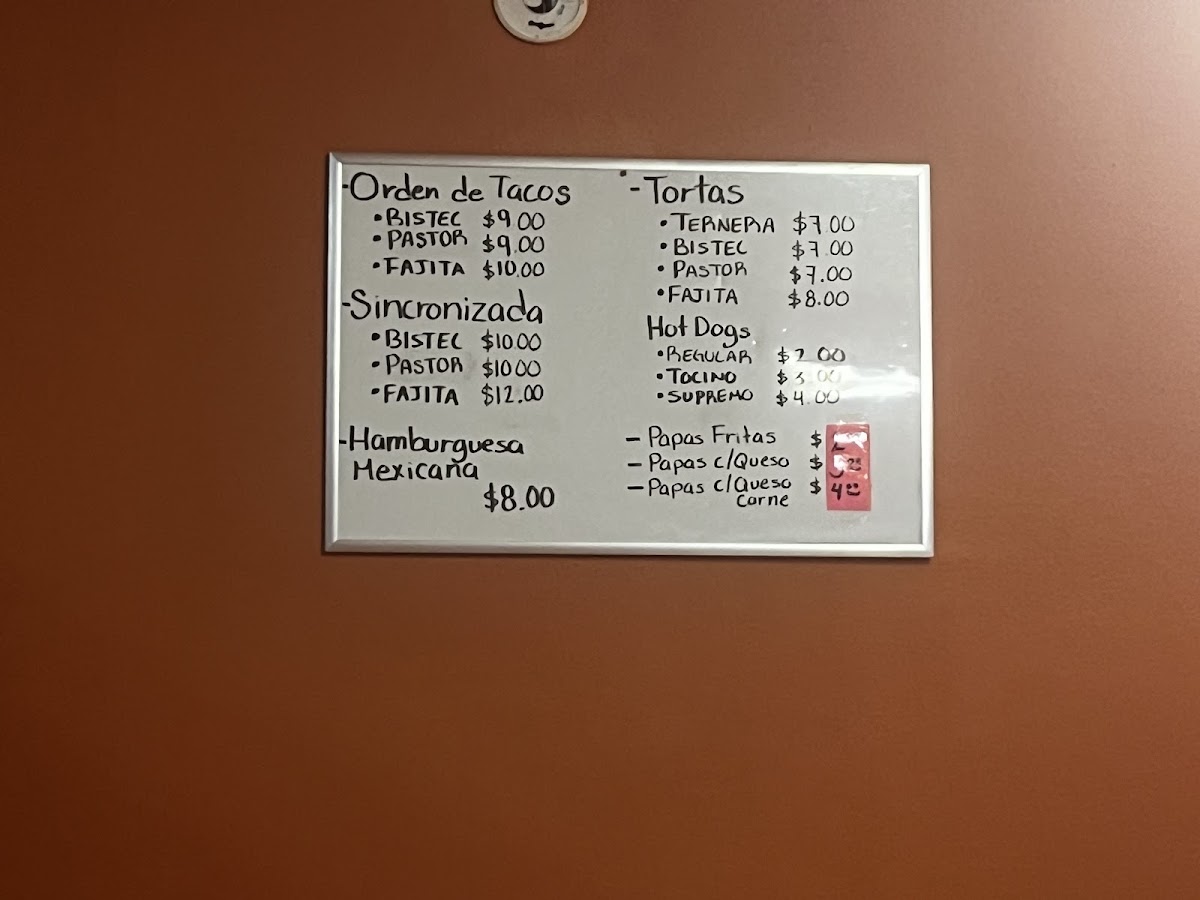 -Orden de Tacos
•BISTEC $9.00
•PASTOR $9.00
•FAJITA $10.00
-Sincronizada
•BISTEC $10.00
•PASTOR $10.00
•FAJITA $12.00
-Hamburguesa
Mexicana
$8.00
-Tortas
•TERNERA $7.00
•BISTEC $7.00
•PASTOR $7.00
•FAJITA $8.00
Hot Dogs
•REGULAR $2.00
•TOCINO $3.00
•SUPREMO $4.00
- Papas Fritas $
- Papas c/Queso $
- Papas c/Queso $ 4.00
Carne